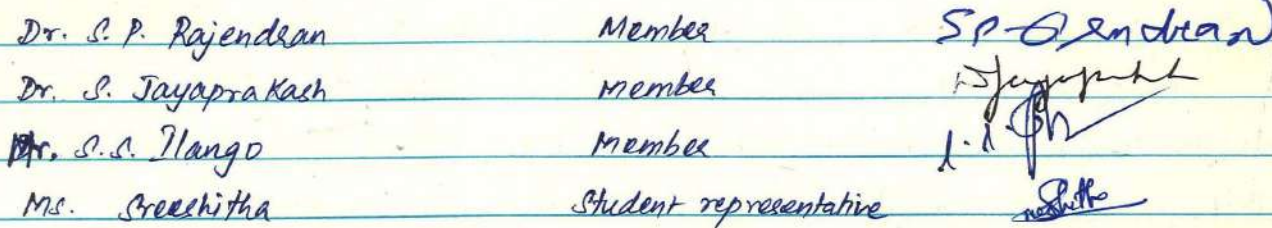 Dr. S. P. Rajendran Member
Dr. S. Jayaprakash member
Mr. S.S. Ilango Member
Ms. Sreeshitha Student representative